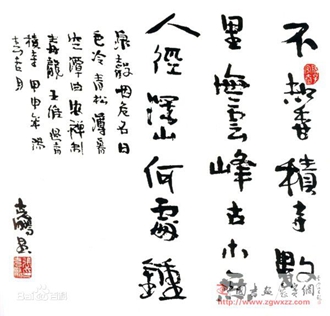 不知香積寺數
里雲峰古木無
人徑深山何處鐘
泉聲咽危石日
色冷青松薄暮
空潭曲安禪制
毒龍 王維過香
積寺 甲申年
Bai百科
www.zgwxzz.com